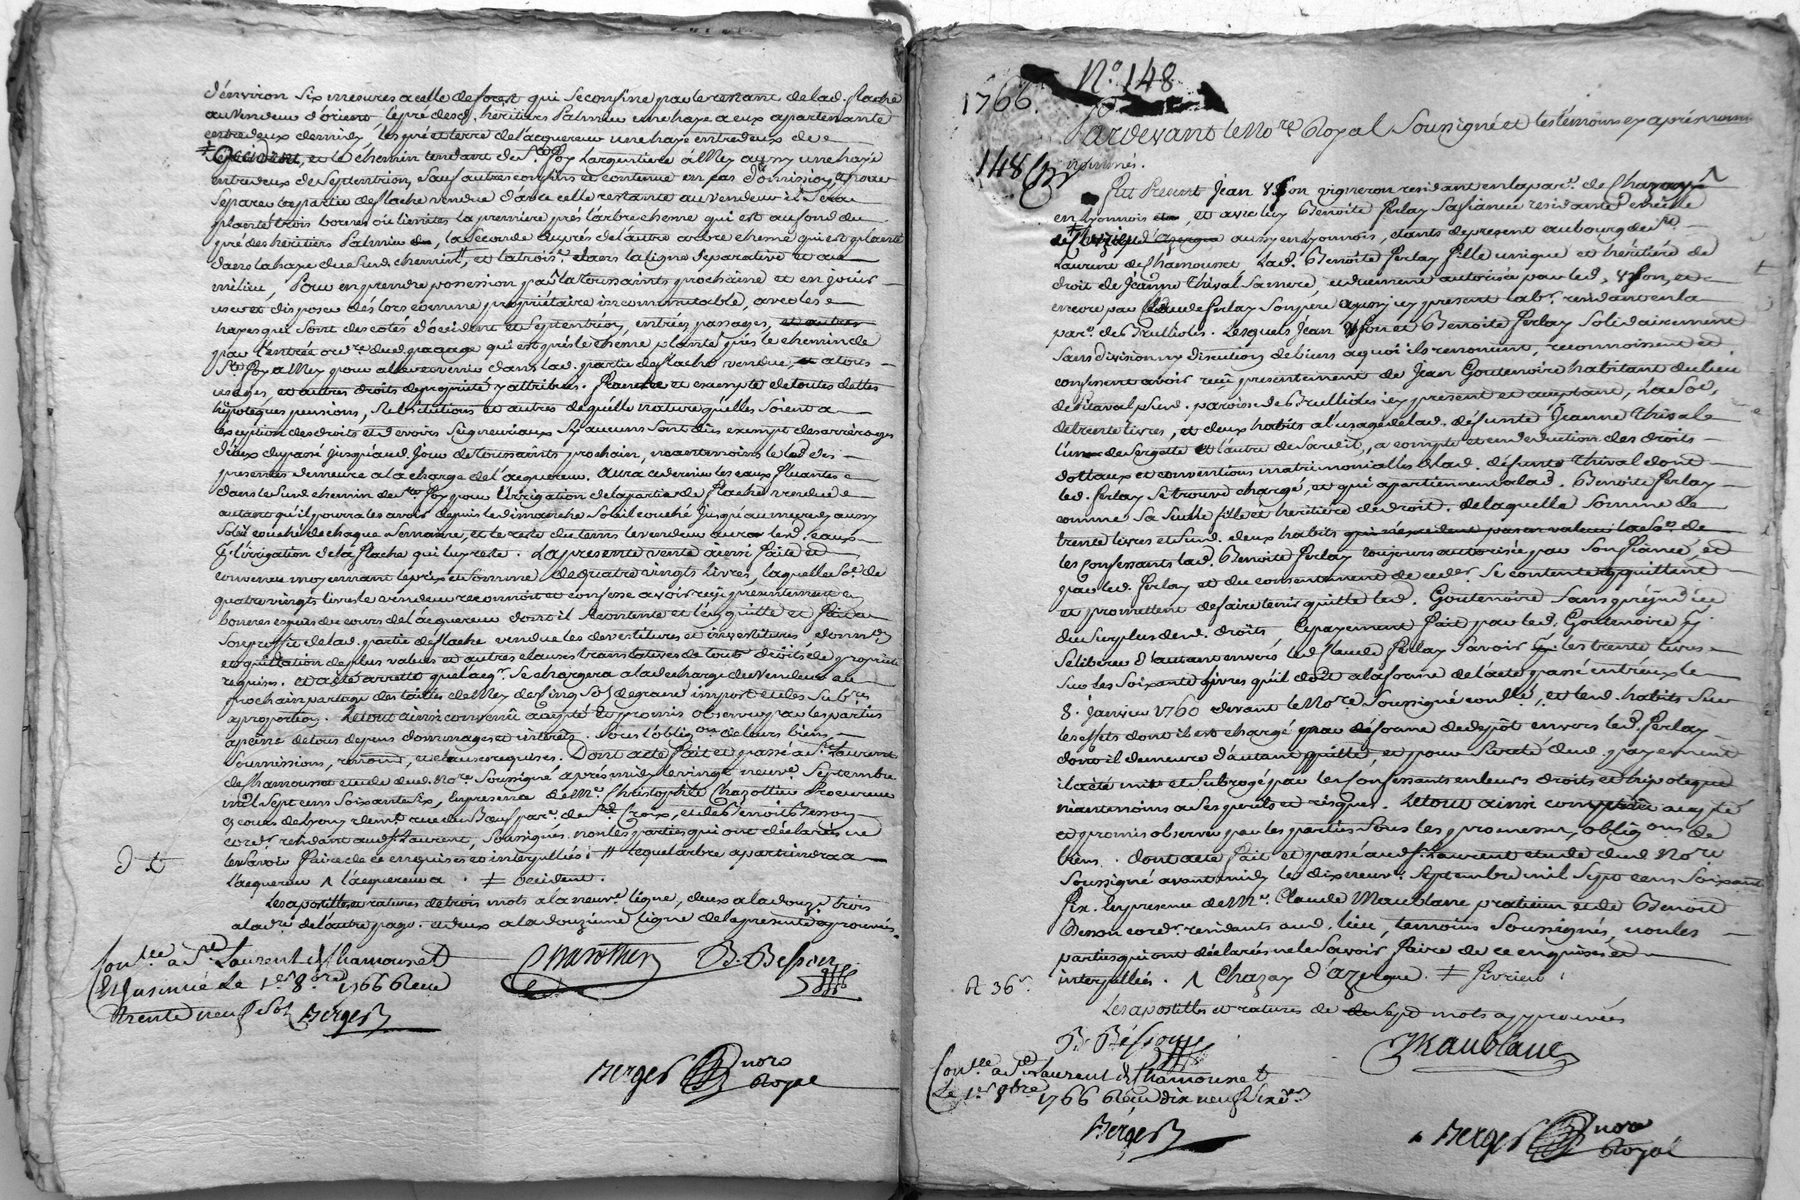 d'environ six mesures a celle de forest qui se confine par le restant de lad. flache
au vendeur d'orient, le pré desd. héritiers Palmieu une haye a eux apartenante
entredeux de midy, les pré et terre de l'acquereur une haye entredeux de
‡ Occident, et le chemin tendant de Ste foy Largentiere à Mey aussy une haye
entredeux de septentrion, sauf autres confins et contenue en cas d'omission, et pour
separer la partie de flache vendue d'avec celle restante au vendeur il sera
planté trois bornes ou limites la premiere prés l'arbre chesne qui est au fond du
pré des héritiers Palmieu, la seconde auprés de l'autre arbre chesne qui est planté
dans la haye du susd. chemin, et la trois.e dans la ligne separative et au
milieu, Pour en prendre possession par la toussaints prochaine et en jouir
user et disposer dés lors comme propriétaire incommutable, avec les
hayes qui sont des cotés d'occident et septentrion, entrées, passages, et autres
par l'entrée ord.re dud. passage qui est prés le chesne planté prés le chemin de
Ste foy a Mey pour aller et venir dans lad. partie de flache vendue, et a tous
usages, et autres droits de proprieté y attribués. franche et exempte de toutes dettes
hipoteques pensions, substitutions et autres de quelle nature qu'elles soient a
l'exception des droits et devoirs seigneuriaux sy aucuns sont dûs exempt des arrérages
d'iceux du passé jusqu'aud. jour de toussaints prochain, néantmoins le led des
presentes demeure a la charge de l'acquereur. aura ce dernier les eaux fluantes
dans le susd. chemin de Ste foy pour l'irrigation de la partie de flache vendue
autant qu'il pourra les avoir depuis le dimanche soleil couché jusqu'au mercredy aussy
soleil couché de chaque semaine, et le reste du tems le vendeur aura lesd. eaux
pr l'irrigation de la flache qui luy reste. La presente vente ainsi faite et
convenue moyennant le prix et somme de quatre vingts livres, laquelle so.e de
quatre vingts livres le vendeur reconnoit et confesse avoir reçu presentement en
bonnes especes du cours de l'acquereur dont il se contente et l'en quitte et fait a
son proffit de lad. partie de flache vendue les devestitures et investitures, donnaon
et quittation de plus values et autres clauses translatives de tous droits de proprieté
requises. et a eté arretté que l'acqr. se chargera a la decharge du vendeur au
prochain partage des tailles de Mey de cinq sols de grand import et des subres
a proportion. Le tout ainsi convenu accepté et promis observer par les parties
a peine de tous depens dommages et interets. Sous l'obligaon de leurs biens,
soumissions, renonon, et clauses requises. Dont acte fait et passé a St. Laurent
de Chamousset etude dud. Nore. soussigné, aprés midy le vingt neuve. septembre
mil sept cens soixante six, en presence de Me. Christophle Chazottier Procureur
es cours de Lyon, demt. au lieu du Bœuf parr. de Ste. Croix, et de Benoit Besson
cordr. residant aud. St. Laurent, soussignés, non les parties qui ont déclarés ne
le sçavoir faire de ce enquises et interpellées. # lequel arbre apartiendra a
l'acquereur ^ l'acquereur a . ‡ occident.
Les apostilles et ratures de trois mots a la neuve. ligne, deux a la douze trois
a la dre. de l'autre page. et deux a la douzieme ligne de la presente approuvés.
Conlée a St. Laurent de Chamousset
Et Insinué le 1er 8bre 1766 Reçu
trente neuf sols Berger
Chazottier B. Besson
Berger nore
Royal
N.o 148
1766.
Pardevant le Nore. Royal Soussigné et les témoins cy aprés nommés
nommés.
148
Fut Present Jean Yfon vigneron residant en la par. de Chazay ^
en Lyonnois, et avec luy Benoite Ferlay sa fiancée residante
d'azergue aussy en Lyonnois, etants de present au bourg de St.
Laurent de Chamousset. Lad. Benoite Ferlay fille unique et héritiere de
droit de Jeanne Thival sa mere, et duement autorisée par led. Yfon, et
encore par Claude Ferlay son pere aussy icy present labr. residant en la
par. de Brullioles. Lesquels Jean Yfon et Benoite Ferlay solidairement
sans division ny discution de biens a quoi ils renoncent, reconnoissent et
confessent avoir reçu presentement de Jean Goutenoire habitant du lieu
de pitaval susd. paroisse de Brullioles icy present et acceptant, la soe.
de trente livres, et deux habits a l'usage de lad. défunte Jeanne Thival
l'un de sergette et l'autre de sardit, a compte et en deduction des droits
dottaux et conventions matrimonialles de lad. défunte Thival dont
led. Ferlay se trouve chargé, et qui apartiennent a lad. Benoite Ferlay
comme sa seule fille et heritiere de droit. de laquelle somme de
trente livres et susd. deux habits
les confessants lad. Benoite Ferlay toujours autorisée par son fiancé, et
par led. Ferlay et du consentement de ce dr. se contentent quittent
et promettent de faire tenir quitte led. Goutenoire sans préjudice
du surplus desd. droits, le payement fait par led. Goutenoire pr.
se liberer d'autant envers led. Claude Ferlay savoir les trente livres
sur les soixante livres qu'il doit a la forme de l'acte passé entr'eux le
8. Janvier 1760 devant le Nore. soussigné conllé, et lesd. habits sur
les effets dont il est chargé par forme de depôt envers led. Ferlay
dont il demeure d'autant quitte, et pour sureté dud. payement
il a eté mis et subrogé par les confessants en leurs droits et hipoteque
néantmoins a ses perils et risques. Le tout ainsi convenu accepté
et promis observer par les parties sous les promesses, obligaons de
biens. . dont acte fait et passé aud. St. Laurent etude dud. Nore.
soussigné avant midy le dix neuv.e septembre mil sept cens soixante
six. En presence de Me. Claude Maublanc praticien et de Benoit
Besson cordr. residants aud. lieu, temoins soussignés, non les
parties qui ont déclarés ne le sçavoir faire de ce enquises et
interpellées. ^ Chazay d'azergue. ‡
R 36 s.
Les apostilles et ratures de sept mots approuvées
B. Besson Maublanc
Conlée a St. Laurent de Chamousset
Le 1er 8bre 1766 Reçu dix neuf
Berger
Berger nore
Royal